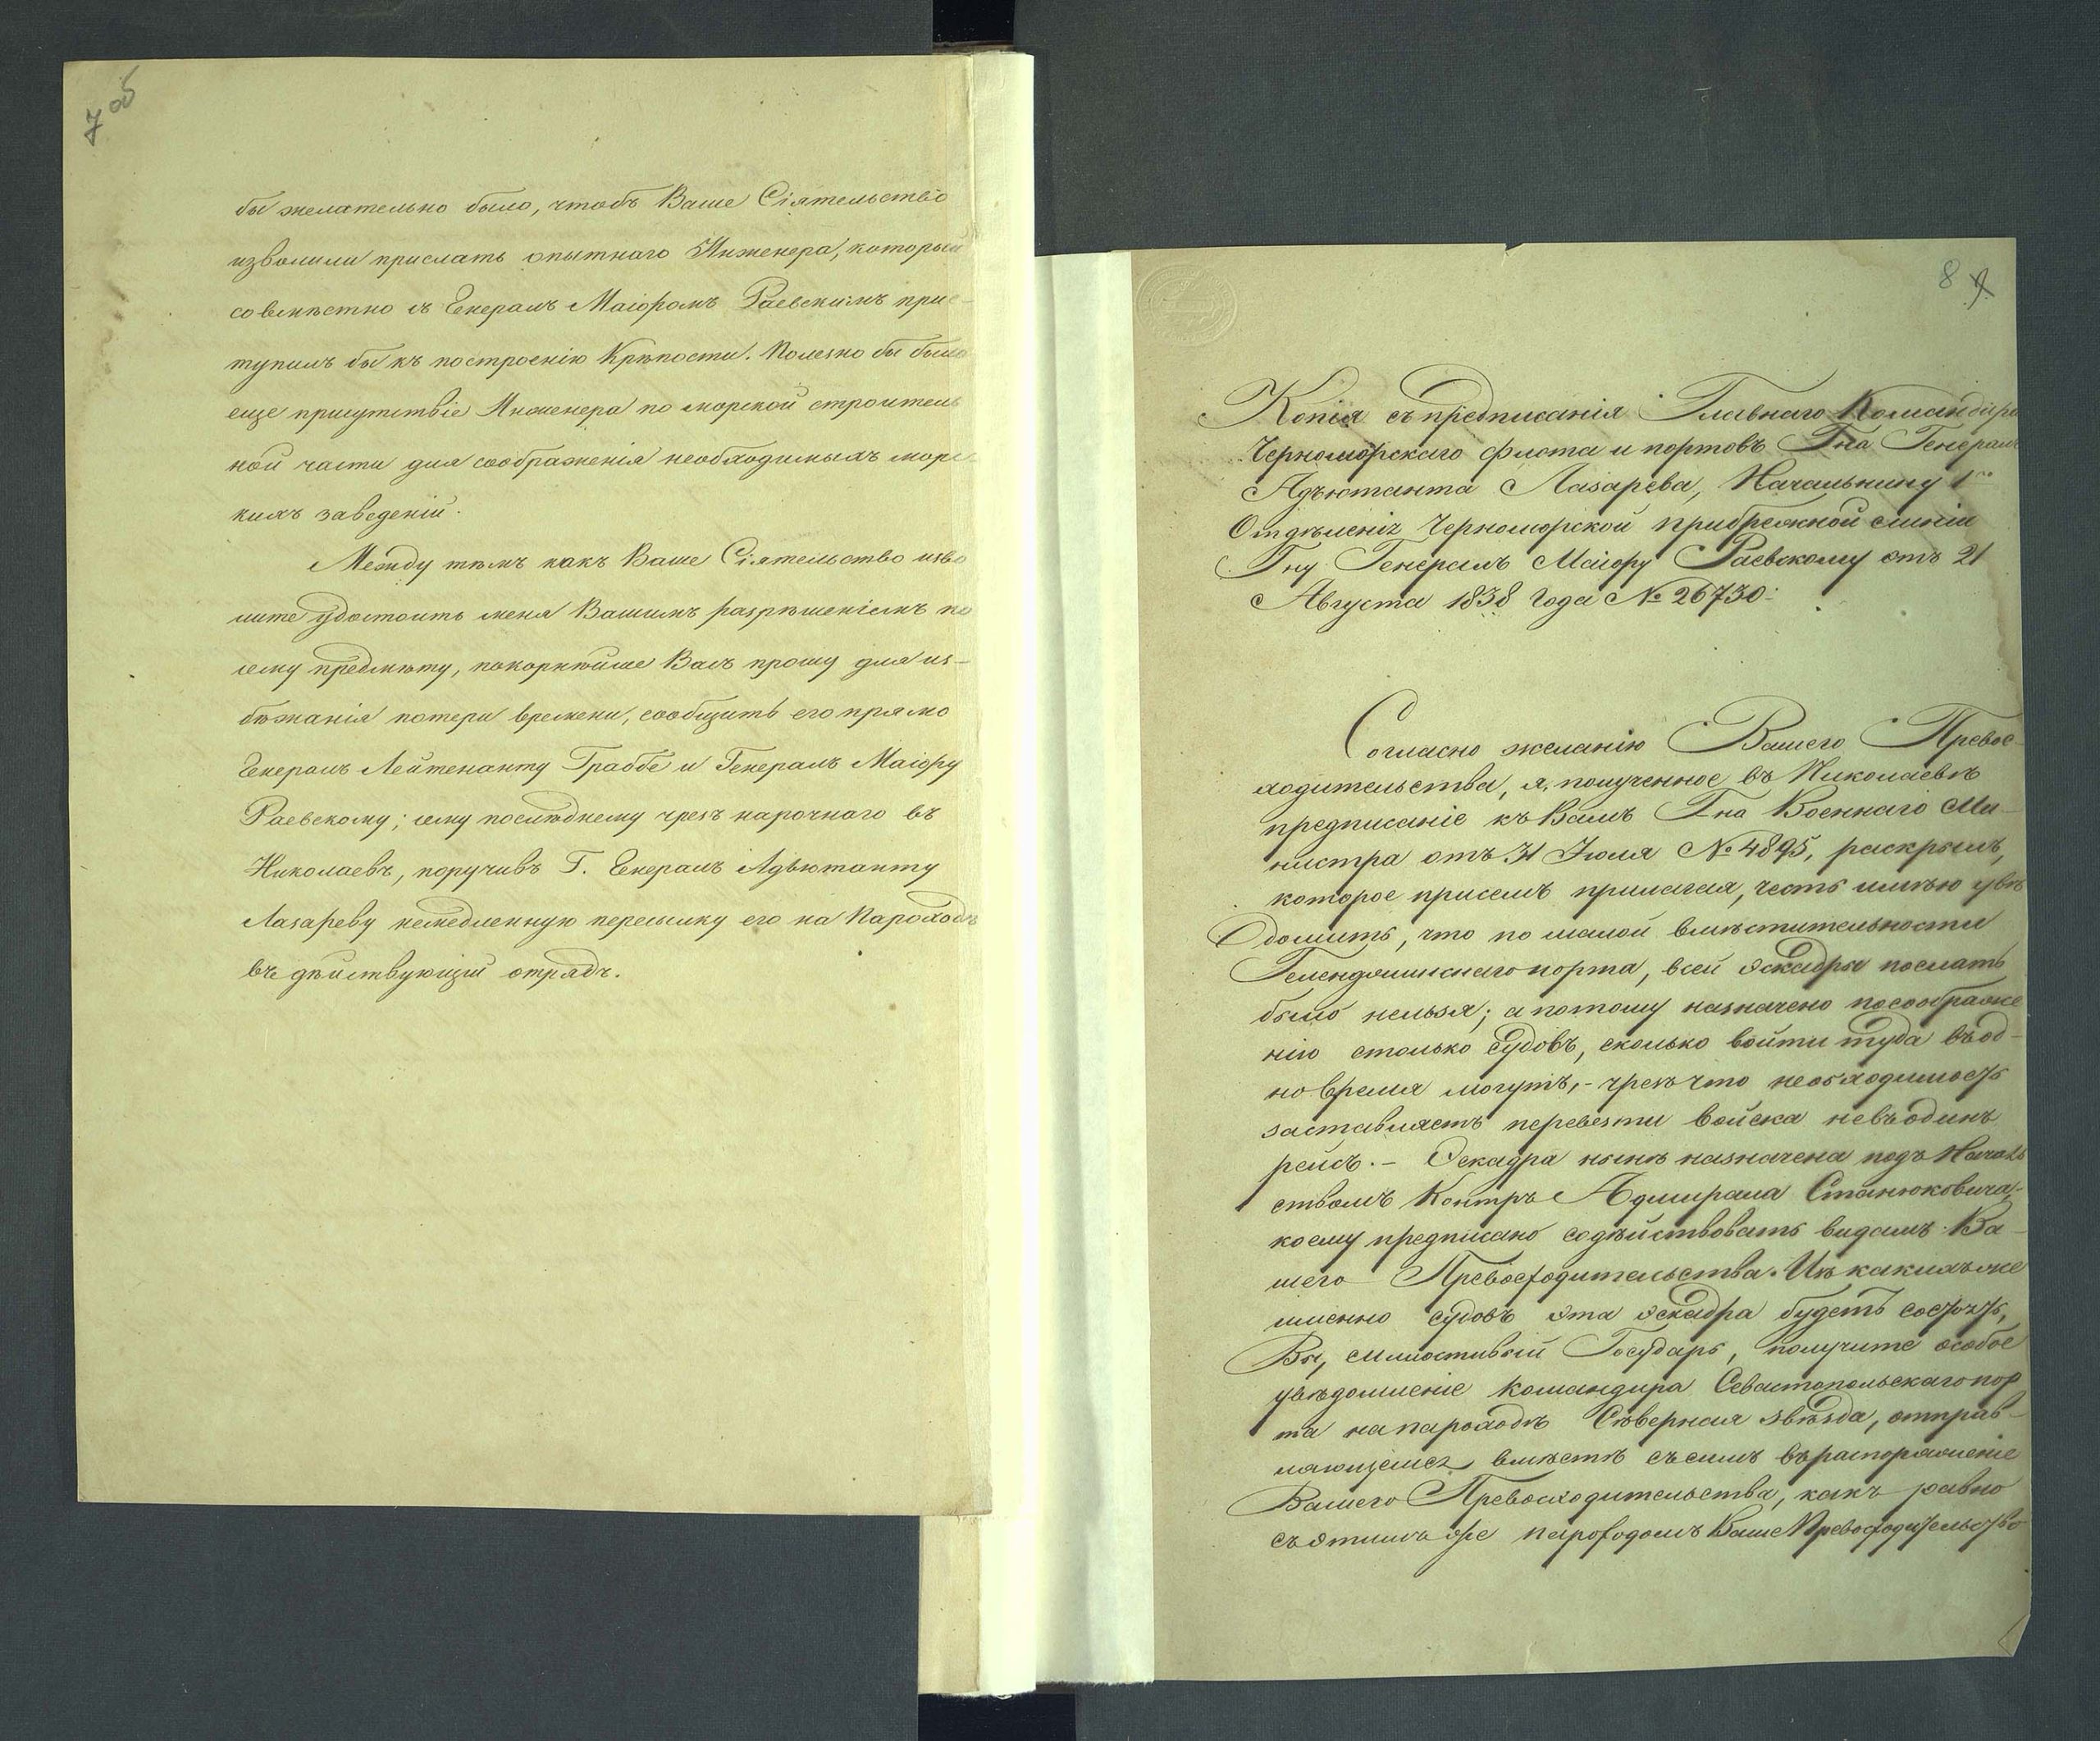 7 об
бы желательно было, чтобъ Ваше Сіятельство
изволили прислать опытнаго Инженера, который
совмѣстно съ Генералъ Маіоромъ Раевскимъ прис-
тупилъ бы къ построенію Крѣпости. Полезно бы было
еще присутствіе Инженера по морской строитель
ной части для соображенія необходимыхъ морс
кихъ заведеній.
Между тѣмъ какъ Ваше Сіятельство изво
лите удостоить меня Вашимъ разрѣшеніемъ по
сему предмѣту, покорнѣйше Васъ прошу для из-
бѣжанія потери времени, сообщить его прямо
Генералъ Лейтенанту Граббе и Генералъ Маіору
Раевскому; сему послѣднему чрезъ нарочнаго въ
Николаевъ, поручивъ Г. Генералъ Адъютанту
Лазареву немедленную пересылку его на Пароходѣ
въ дѣйствующій отрядъ.
8
Копія съ предписанія Главнаго Командира
Черноморскаго флота и портовъ Гна Генералъ
Адъютанта Лазарева, Начальнику 1го
Отдѣленія Черноморской прибрежной линіи
Гну Генералъ Маіору Раевскому отъ 21
Августа 1838 Года № 26730.
Согласно желанію Вашего Превос-
ходительства, я, полученное въ Николаевѣ
предписаніе къ Вамъ Гна Военнаго Ми-
нистра отъ 31 Іюля № 4895, раскрылъ,
которое присемъ прилагая, честь имѣю увѣ
домить, что по малой вмѣстительности
Геленджикскаго порта, всей эскадры послать
было нельзя; а потому назначено посоображе
нію столько судовъ, сколько войти туда въ од-
но время могутъ, - чрезъ что необходимость
заставляетъ перевезти войска не въ одинъ
рейсъ. - Эскадра нынѣ назначена подъ Началь
ствомъ Контръ Адмирала Станюковича,
коему предписано содѣйствовать видамъ Ва-
шего Превосходительства. Изъ какихъ же
именно судовъ эта эскадра будетъ состоять,
Вы, Милостивый Государь, получите особое
увѣдомленіе Командира Севастопольскаго пор
та на пароходѣ Сѣверная звѣзда, отправ-
ляющемся вмѣстѣ съ симъ въ распоряженіе
Вашего Превосходительства, какъ равно
съ этимъ же пароходомъ Ваше Превосходительство